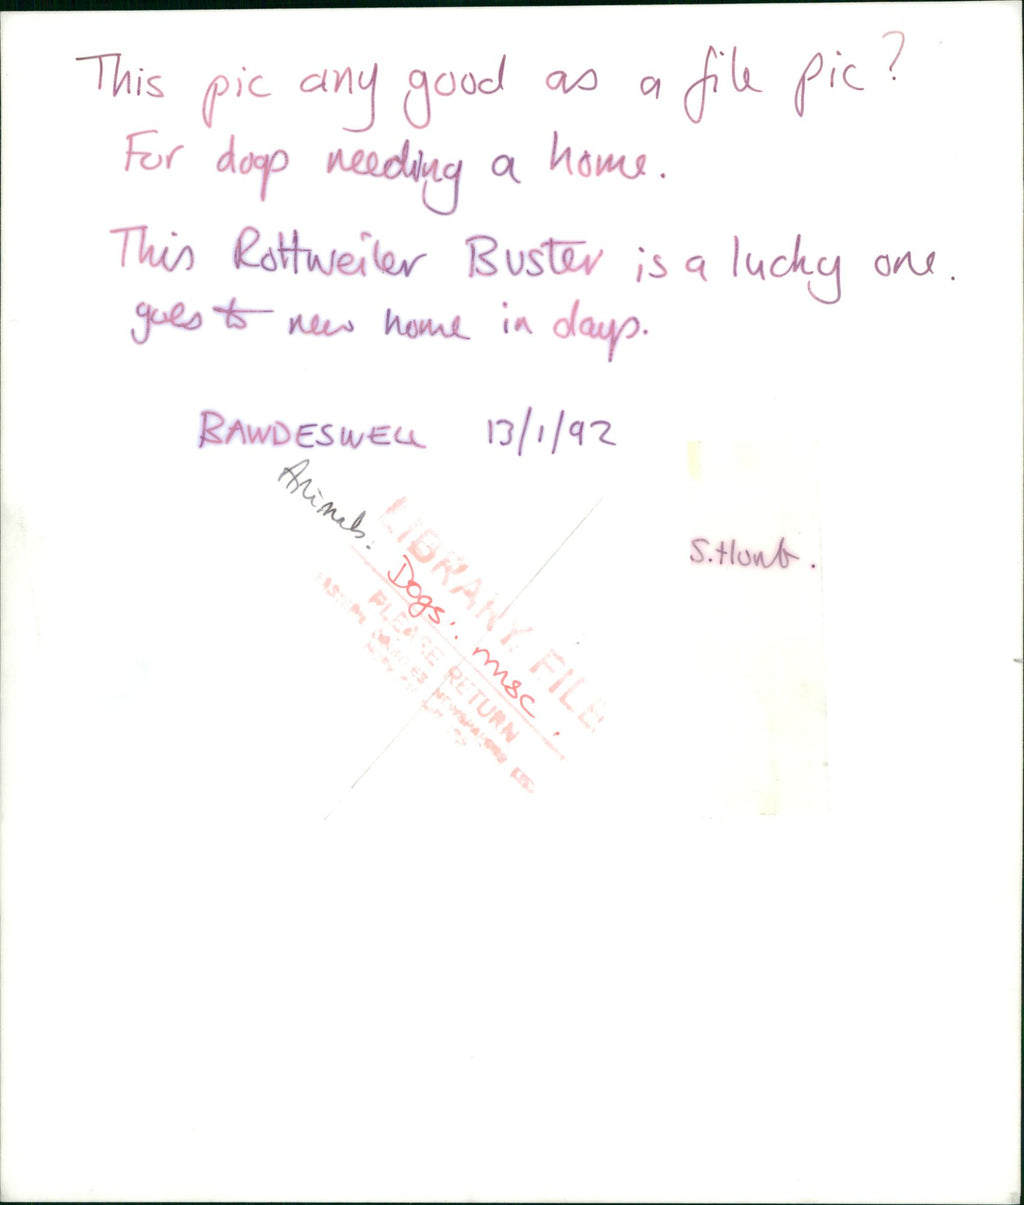 This pic any good as a file pic?
For dogs needing a home.
This Rottweiler Buster is a lucky one.
goes to new home in days.
BAWDESWELL 13/1/92
Animals:
S. Hunt.
LIBRARY FILE
Dogs: misc.
PLEASE RETURN
NEWSPAPERS LTD.